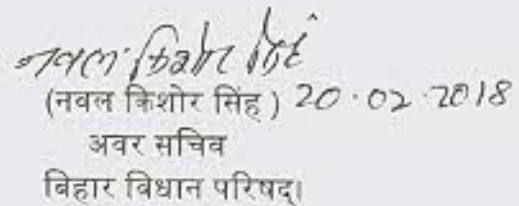 नवल किशोर सिंह
(नवल किशोर सिंह) 20.02.2018
अवर सचिव
बिहार विधान परिषद्।